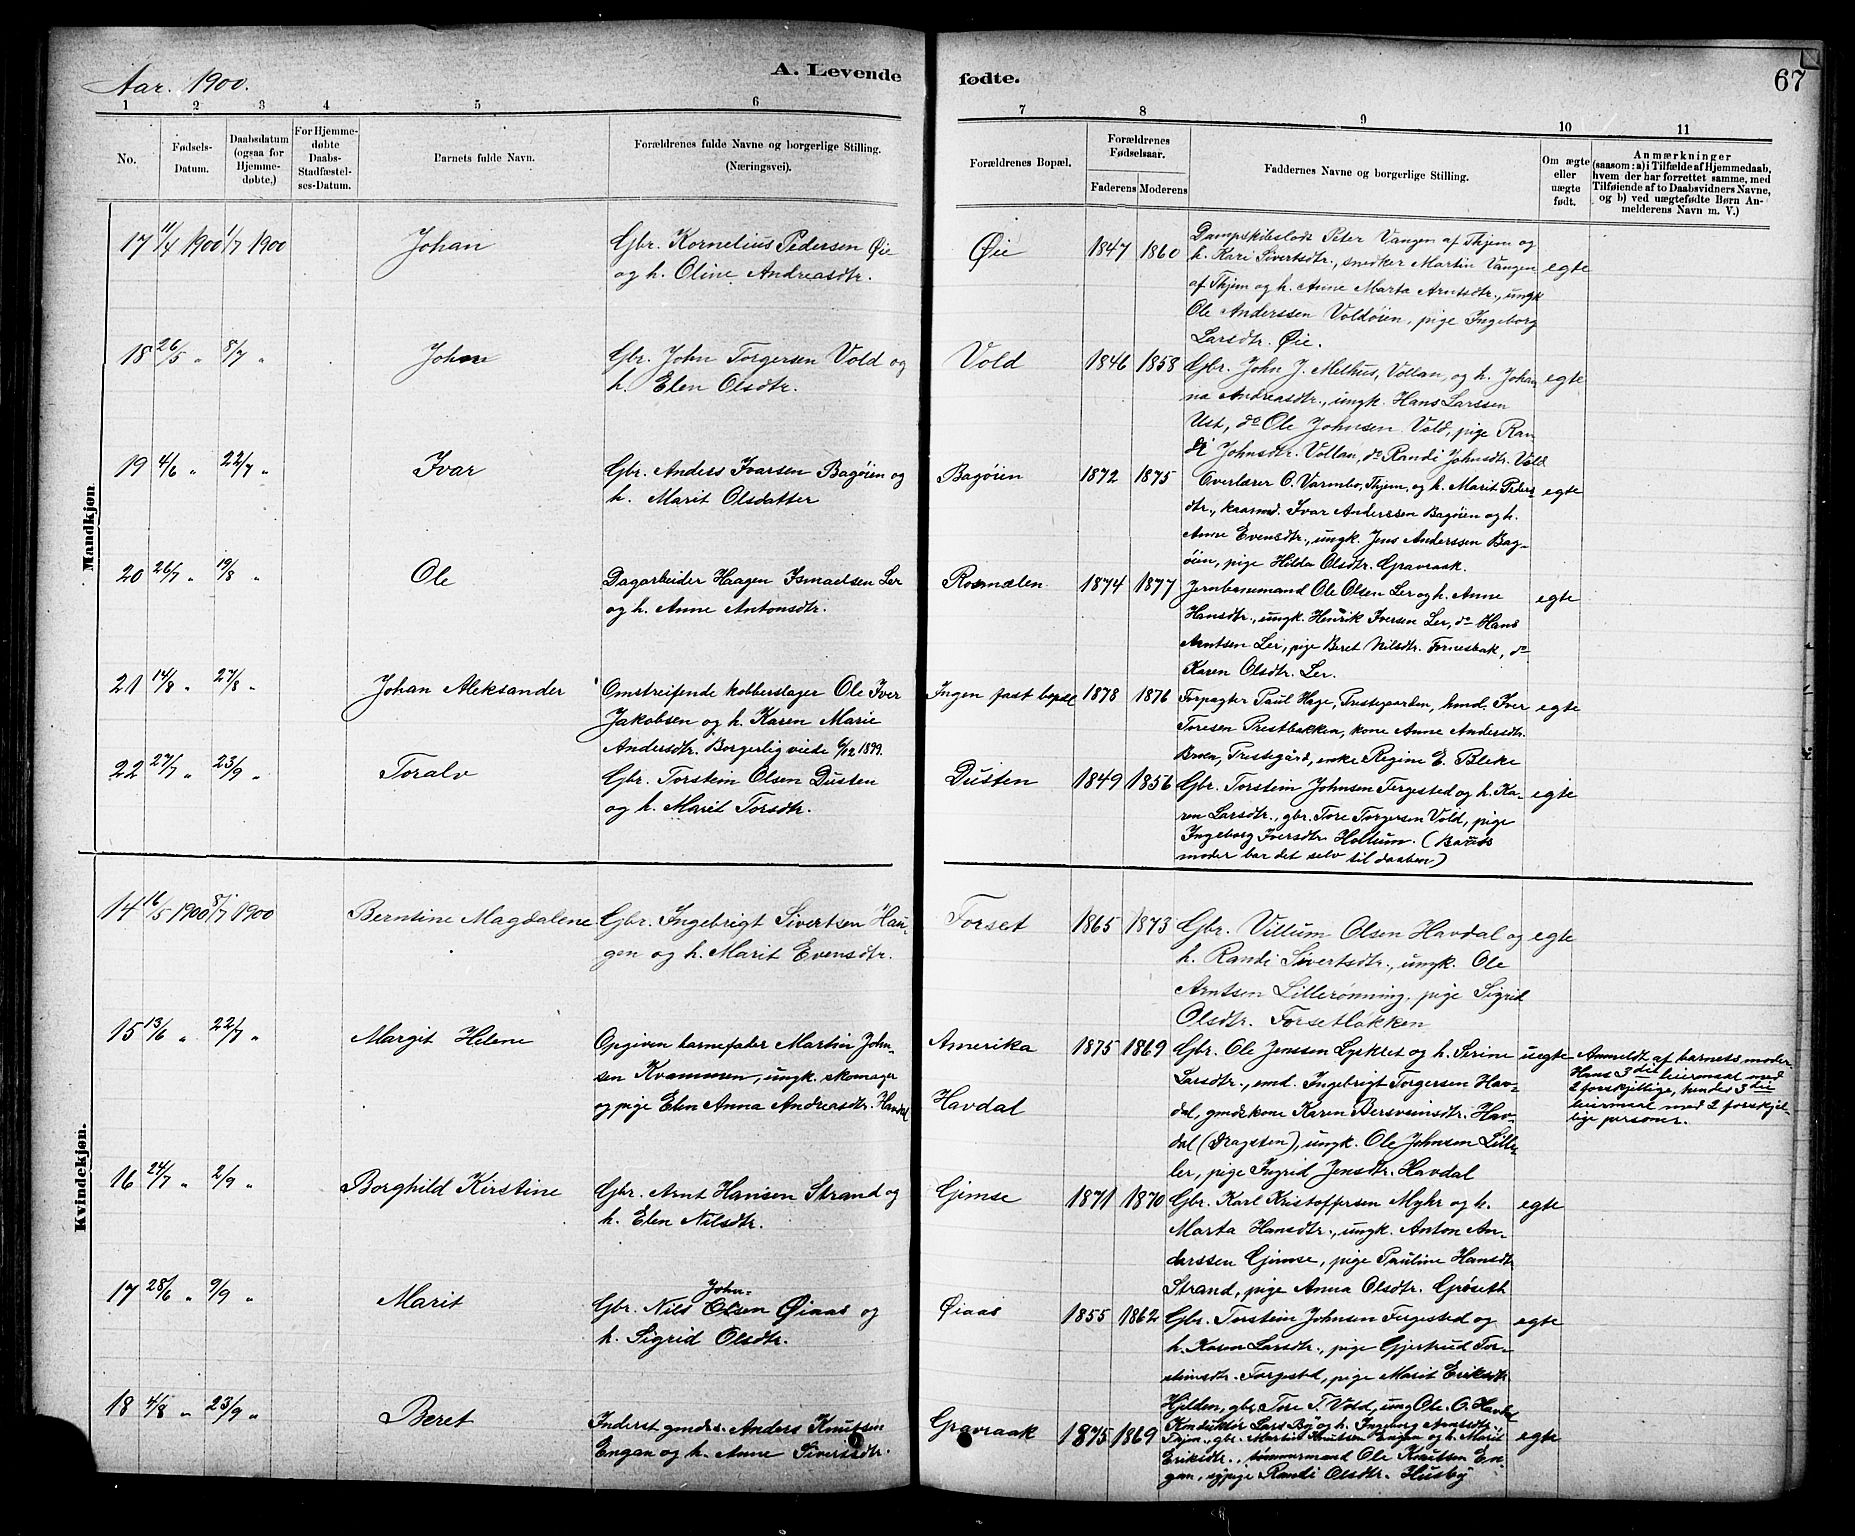 Aar. 1900.
A. Levende
fødte.
67
1 2 3 4 5 6 7 8 9 10 11
No.
Fødsels-Datum.
Daabsdatum (ogsaa for Hjemme-døbte,)
For Hjemme-døbte Daabs-Stadfæstel-ses-Datum.
Barnets fulde Navn.
Forældrenes fulde Navne og borgerlige Stilling.
(Næringsvei).
Forældrenes Bopæl.
Forældrenes Fødselsaar.
Faderens Moderens
Faddernes Navne og borgerlige Stilling.
Om ægte eller uægte født.
Anmærkninger
(saasom: a) i Tilfælde af Hjemmedaab,
hvem der har forrettet samme, med
Tilføiende af to Daabsvidners Navne,
og b) ved uægtefødte Børn An-
melderens Navn m. V.)
Mandkjøn
17 11/4 1900 1/7 1900 Johan
Gbr. Kornelius Pedersen Øie
og h. Oline Andreasdtr.
Øie 1847 1860
Dampskibslods Peter Vangen af Thjem og
h. Kari Sivertsdtr., snedker Martin Vangen
af Thjem og h. Anne Marta Arntsdtr., ungk
Ole Anderssen Voldøien, pige Ingeborg
Larsdtr. Øie.
egte
18 26/5 " 8/7 " John
Gbr. John Torgersen Vold og
h. Elen Olsdtr.
Vold 1846 1858
Gbr. John J. Melhus, Vollan, og h. Johan
na Andreasdtr., ungk. Hans Larssen
Ust, do Ole Johnsen Vold, pige Ran
di Johnsdtr. Vollan, do Randi Johnsdtr. Vold
egte
19 4/6 " 22/7 " Ivar
Gbr. Anders Ivarsen Bagøien og
h. Marit Olsdatter
Bagøien 1872 1875
Overlærer O. Varmbo, Thjem, og h. Marit Peders-
dtr., kaarmd. Ivar Anderssen Bagøien og h.
Anne Evensdtr., ungk. Jens Anderssen Bag-
øien, pige Hilda Olsdtr. Gravraak.
egte
20 26/7 " 19/8 " Ole
Dagarbeider Haagen Ismaelsen Ler
og h. Anne Antonsdtr.
Rosmælen 1874 1877
Jernbanemand Ole Olsen Ler og h. Anne
Hansdtr., ungk. Henrik Iversen Ler, do Hans
Arntsen Ler, pige Beret Nilsdtr. Fornesbak, do
Karen Olsdtr. Ler.
egte
21 14/8 " 27/8 " Johan Aleksander
Omstreifende kobberslager Ole Iver
Jakobsen og h. Karen Marie
Andersdtr. Borgerlig viede 6/12 1899.
Ingen fast bopæl 1878 1876
Forpagter Paul Hage, Prestegarden, hmd. Iver
Toresen Prestbakken, kone Anne Andersdtr.
Broen, Prestegård, enke Regine E. Bleke
egte
22 27/7 " 23/9 " Toralv
Gbr. Torstein Olsen Dusten
og h. Marit Torsdtr.
Dusten 1849 1856
Gbr. Torstein Johnsen Fergested og h. Ka-
ren Larsdtr., gbr. Tore Torgersen Vold, pige
Ingeborg Iversdtr. Hollum. (Barnets
moder bar det selv til daaben)
egte
Kvindekjøn.
14 16/5 1900 8/7 1900 Berntine Magdalene
Gbr. Ingebrigt Sivertsen Hau-
gen og h. Marit Evensdtr.
Forset 1865 1873
Gbr. Villum Olsen Havdal og
h. Randi Sivertsdtr., ungk. Ole
Arntsen Lillerønning, pige Sigrid
Olsdtr. Forsetbakken
egte
15 13/6 " 22/7 " Margit Helene
Opgiven barnefader Martin John-
sen Kvammen, ungk. skomager
og pige Elen Anna Andreasdtr. Havdal
Amerika
Havdal
1875 1869
Gbr. Ole Jenssen Lysklet og h. Serine
Larsdtr., emd. Ingebrigt Torgersen Hav-
dal, gmdskone Karen Bersveinsdtr. Hav-
dal (Dragsten), ungk. Ole Johnsen Lille-
ler, pige Ingrid Jensdtr. Havdal
uegte
Anmeldt af barnets moder
Hans 3die leiermaal med
2 forskjellige, hendes 3die
leiermaal med 2 forskjel-
lige personer.
16 24/7 " 2/9 " Borghild Kirstine
Gbr. Arnt Hansen Strand og
h. Elen Nilsdtr.
Gimse 1871 1870
Gbr. Karl Kristoffersen Myhr og h.
Marta Hansdtr., ungk. Anton An-
derssen Gimse, pige Pauline Hansdtr
Strand, pige Anna Olsdtr. Grøseth
egte
17 28/6 " 9/9 " Marit
John-
Gbr. Nils Olsen Øiaas og
h. Sigrid Olsdtr.
Øiaas 1855 1862
Gbr. Torstein Johnsen Fergested og
h. Karen Larsdtr., pige Gjertrud Tor-
steinsdtr. Fergested, pige Marit Eriksdtr
Hjilden, gbr. Tore T. Vold, ung Ole O. Havdal
egte
18 4/8 " 23/9 " Beret
Inderst gmds. Anders Knutsen
Engan og h. Anne Siversdtr.
Gravraak 1875 1869
Konduktør Lars By og h. Ingeborg Arntsdtr.
Thjem, gbr. Martin Knutsen Engan og h. Marit
Eriksdtr., tømmermand Ole Knutsen En-
gan, sypige Randi Olsdtr. Husby
egte